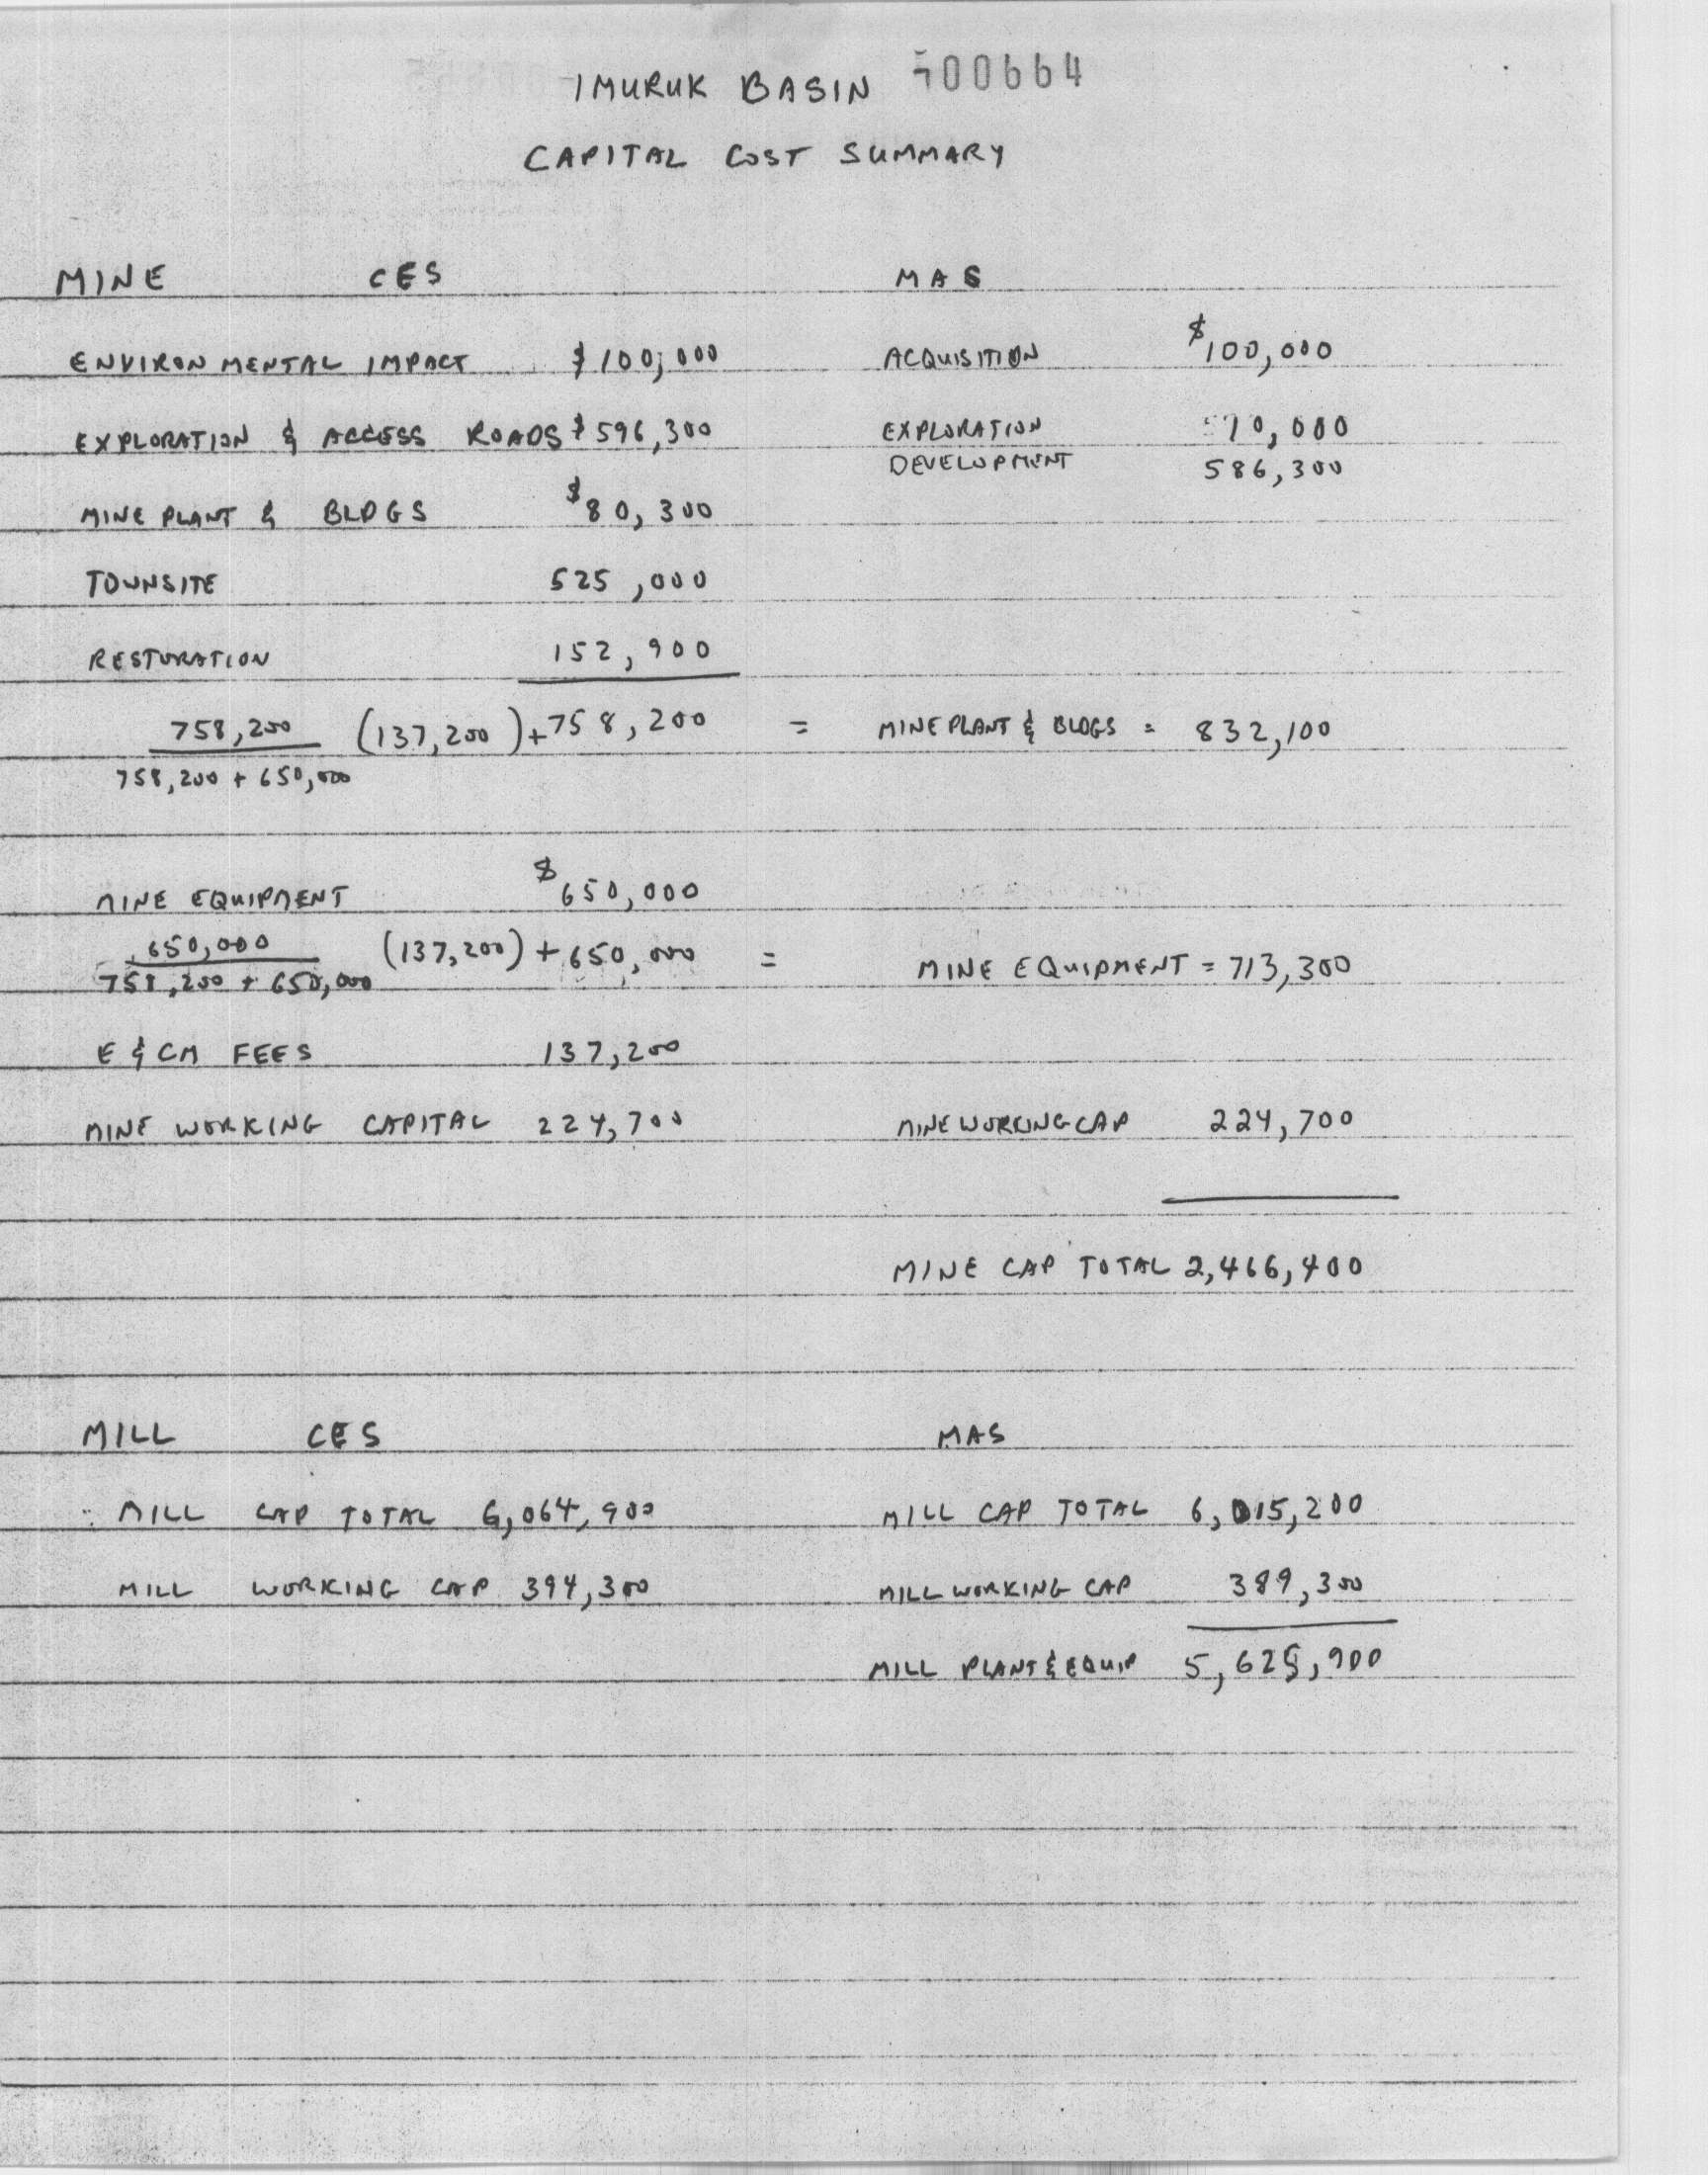 IMURUK BASIN 500664
CAPITAL COST SUMMARY
MINE CES MAS
ENVIRONMENTAL IMPACT $100,000 ACQUISITION $100,000
EXPLORATION & ACCESS ROADS $596,300 EXPLORATION 10,000
DEVELOPMENT 586,300
MINE PLANT & BLDGS $80,300
TOWNSITE 525,000
RESTORATION 152,900
758,200 (137,200) + 758,200 = MINE PLANT & BLDGS = 832,100
758,200 + 650,000
MINE EQUIPMENT $650,000
650,000 (137,200) + 650,000 = MINE EQUIPMENT = 713,300
758,200 + 650,000
E & CM FEES 137,200
MINE WORKING CAPITAL 224,700 MINE WORKING CAP 224,700
MINE CAP TOTAL 2,466,400
MILL CES MAS
MILL CAP TOTAL 6,064,900 MILL CAP TOTAL 6,015,200
MILL WORKING CAP 394,300 MILL WORKING CAP 389,300
MILL PLANT & EQUIP 5,625,900